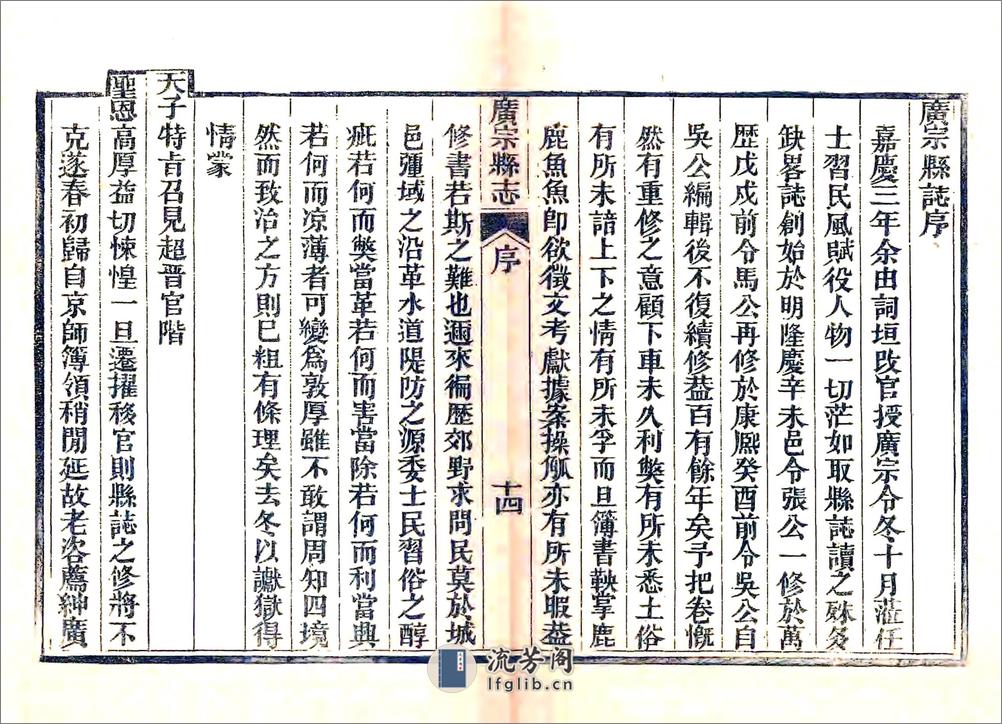 廣宗縣誌序
嘉慶三年余出詞垣改官授廣宗令冬十月蒞任
士習民風賦役人物一切茫如取縣誌讀之殊多
缺畧誌創始於明隆慶辛未邑令張公一修於萬
歷戊戌前令馬公再修於康熈癸酉前令吳公自
吳公編輯後不復續修益百有餘年矣予把卷慨
然有重修之意顧下車未久利獘有所未悉土俗
有所未諳上下之情有所未孚而且簿書鞅掌鹿
鹿魚魚卽欲徵文考獻據案操觚亦有所未暇葢
廣宗縣志
序
十四
修書若斯之難也邇來徧歷郊野求問民莫於城
邑疆域之沿革水道隄防之源委士民習俗之醇
疵若何而獘當革若何而害當除若何而利當興
若何而凉薄者可變爲敦厚雖不敢謂周知四境
然而致治之方則已粗有條理矣去冬以讞獄得
情蒙
天子特旨召見超晋官階
聖恩高厚益切悚惶一旦遷擢移官則縣誌之修將不
克遂春初歸自京師簿領稍閒延故老咨薦紳廣
流芳阁
lfglib.cn